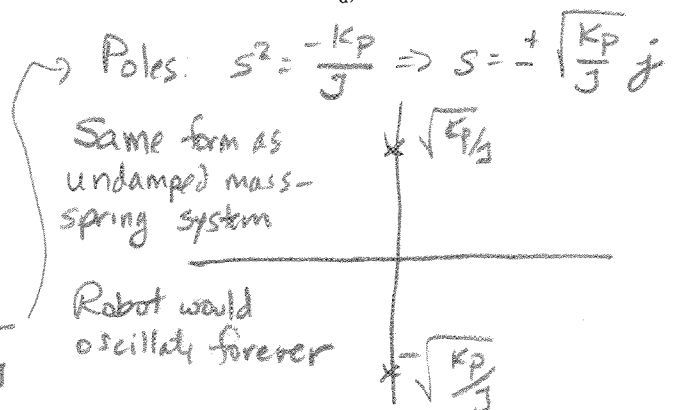 Poles: s² = -Kp/J => s = ± √(Kp/J) j
Same form as
undamped mass-
spring system
√Kp/J
Robot would
oscillate forever
-√Kp/J